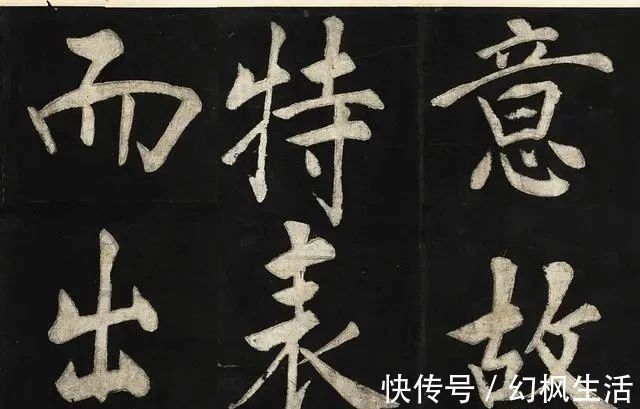 意故
特表
而出
快传号 / 幻枫生活